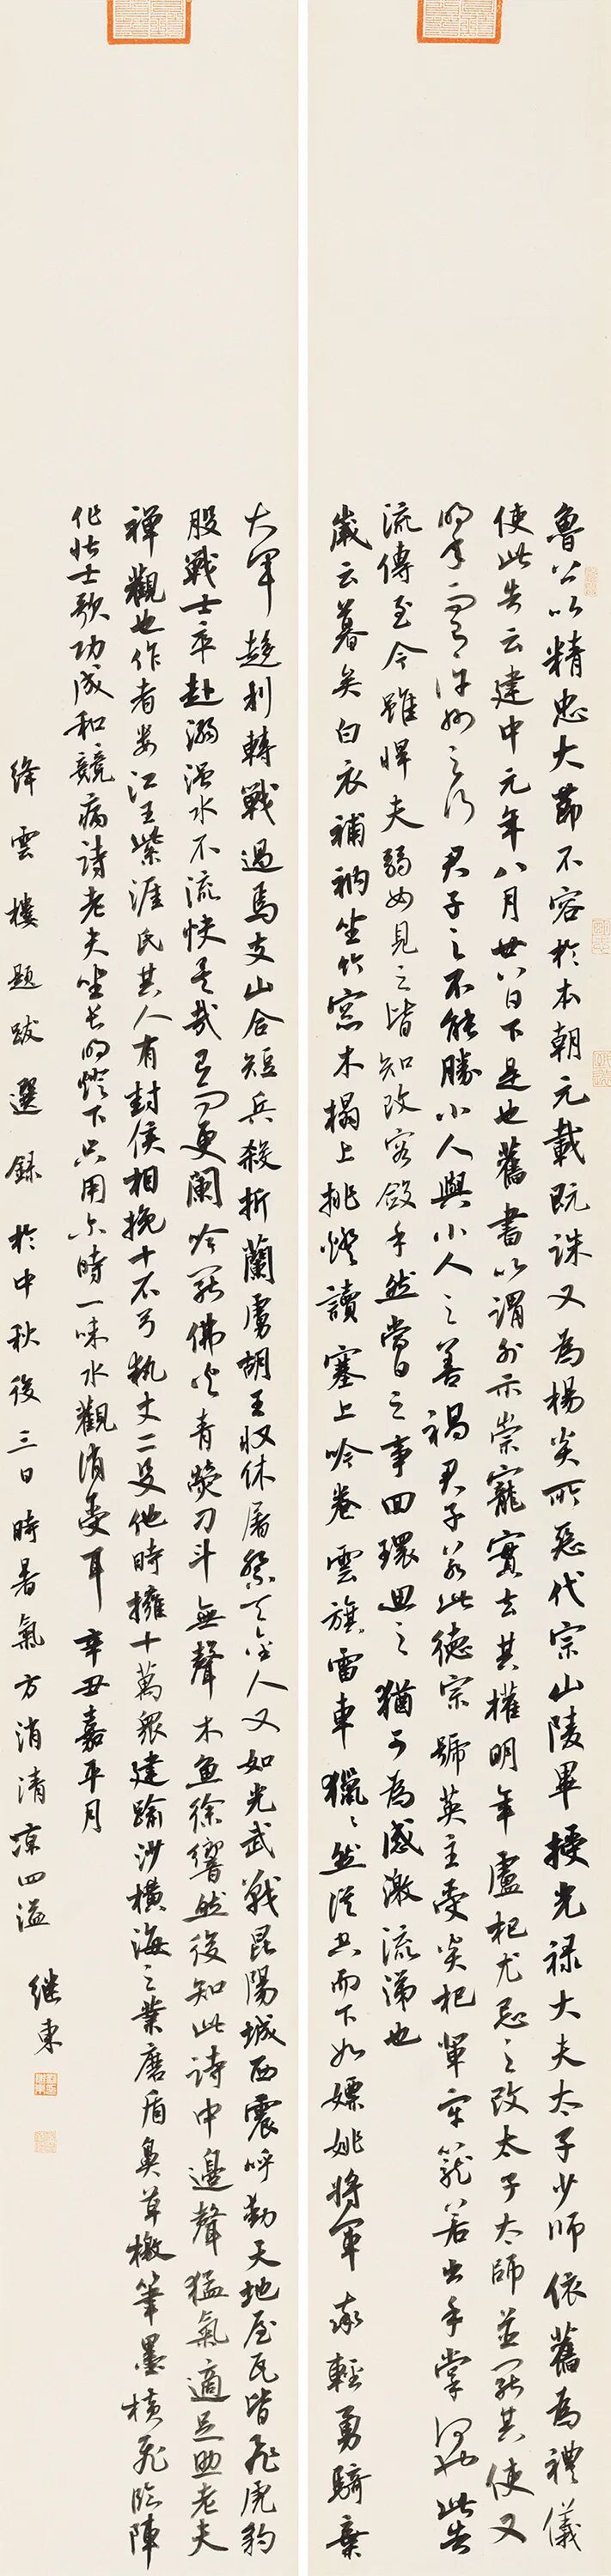 魯公以精忠大節不容於本朝元載既誅又為楊炎所惡代宗山陵畢授光禄大夫太子少師依舊為禮儀
使此告云建中元年八月廿八日下是也舊書以謂外示崇寵實去其權明年盧杞尤忌之改太子太師並罷其使又
明年而有汝州之行君子之不能勝小人與小人之善禍君子若此德宗號英主受炎杞輩牢籠若出手掌何也此告
流傳至今雖悍夫弱女見之皆知改容斂手然當日之事回環思之猶可為感激流涕也
歲云暮矣白衣補衲坐竹窓木榻上挑燈讀塞上吟卷雲旗雷車獵獵然從空而下如嫖姚將軍率輕勇騎棄
大軍趨利轉戰過焉支山合短兵殺折蘭虜胡王收休屠祭天金人又如光武戰昆陽城西震呼動天地屋瓦皆飛虎豹
股戰士卒赴溺滍水不流快矣哉已而更闌吟罷佛火青熒刁斗無聲木魚徐響然後知此詩中邊聲猛氣適足助老夫
禪觀也作者婁江王紫涯氏其人有封侯相挽十石弓執丈二殳他時擁十萬衆建踰沙橫海之業磨盾鼻草檄筆墨橫飛臨陣
作壯士歌功成和競病詩老夫坐長明燈下只用尔時一味水觀消受耳 辛丑嘉平月
絳雲樓題跋選録於中秋後三日時暑氣方消清凉四溢 继東